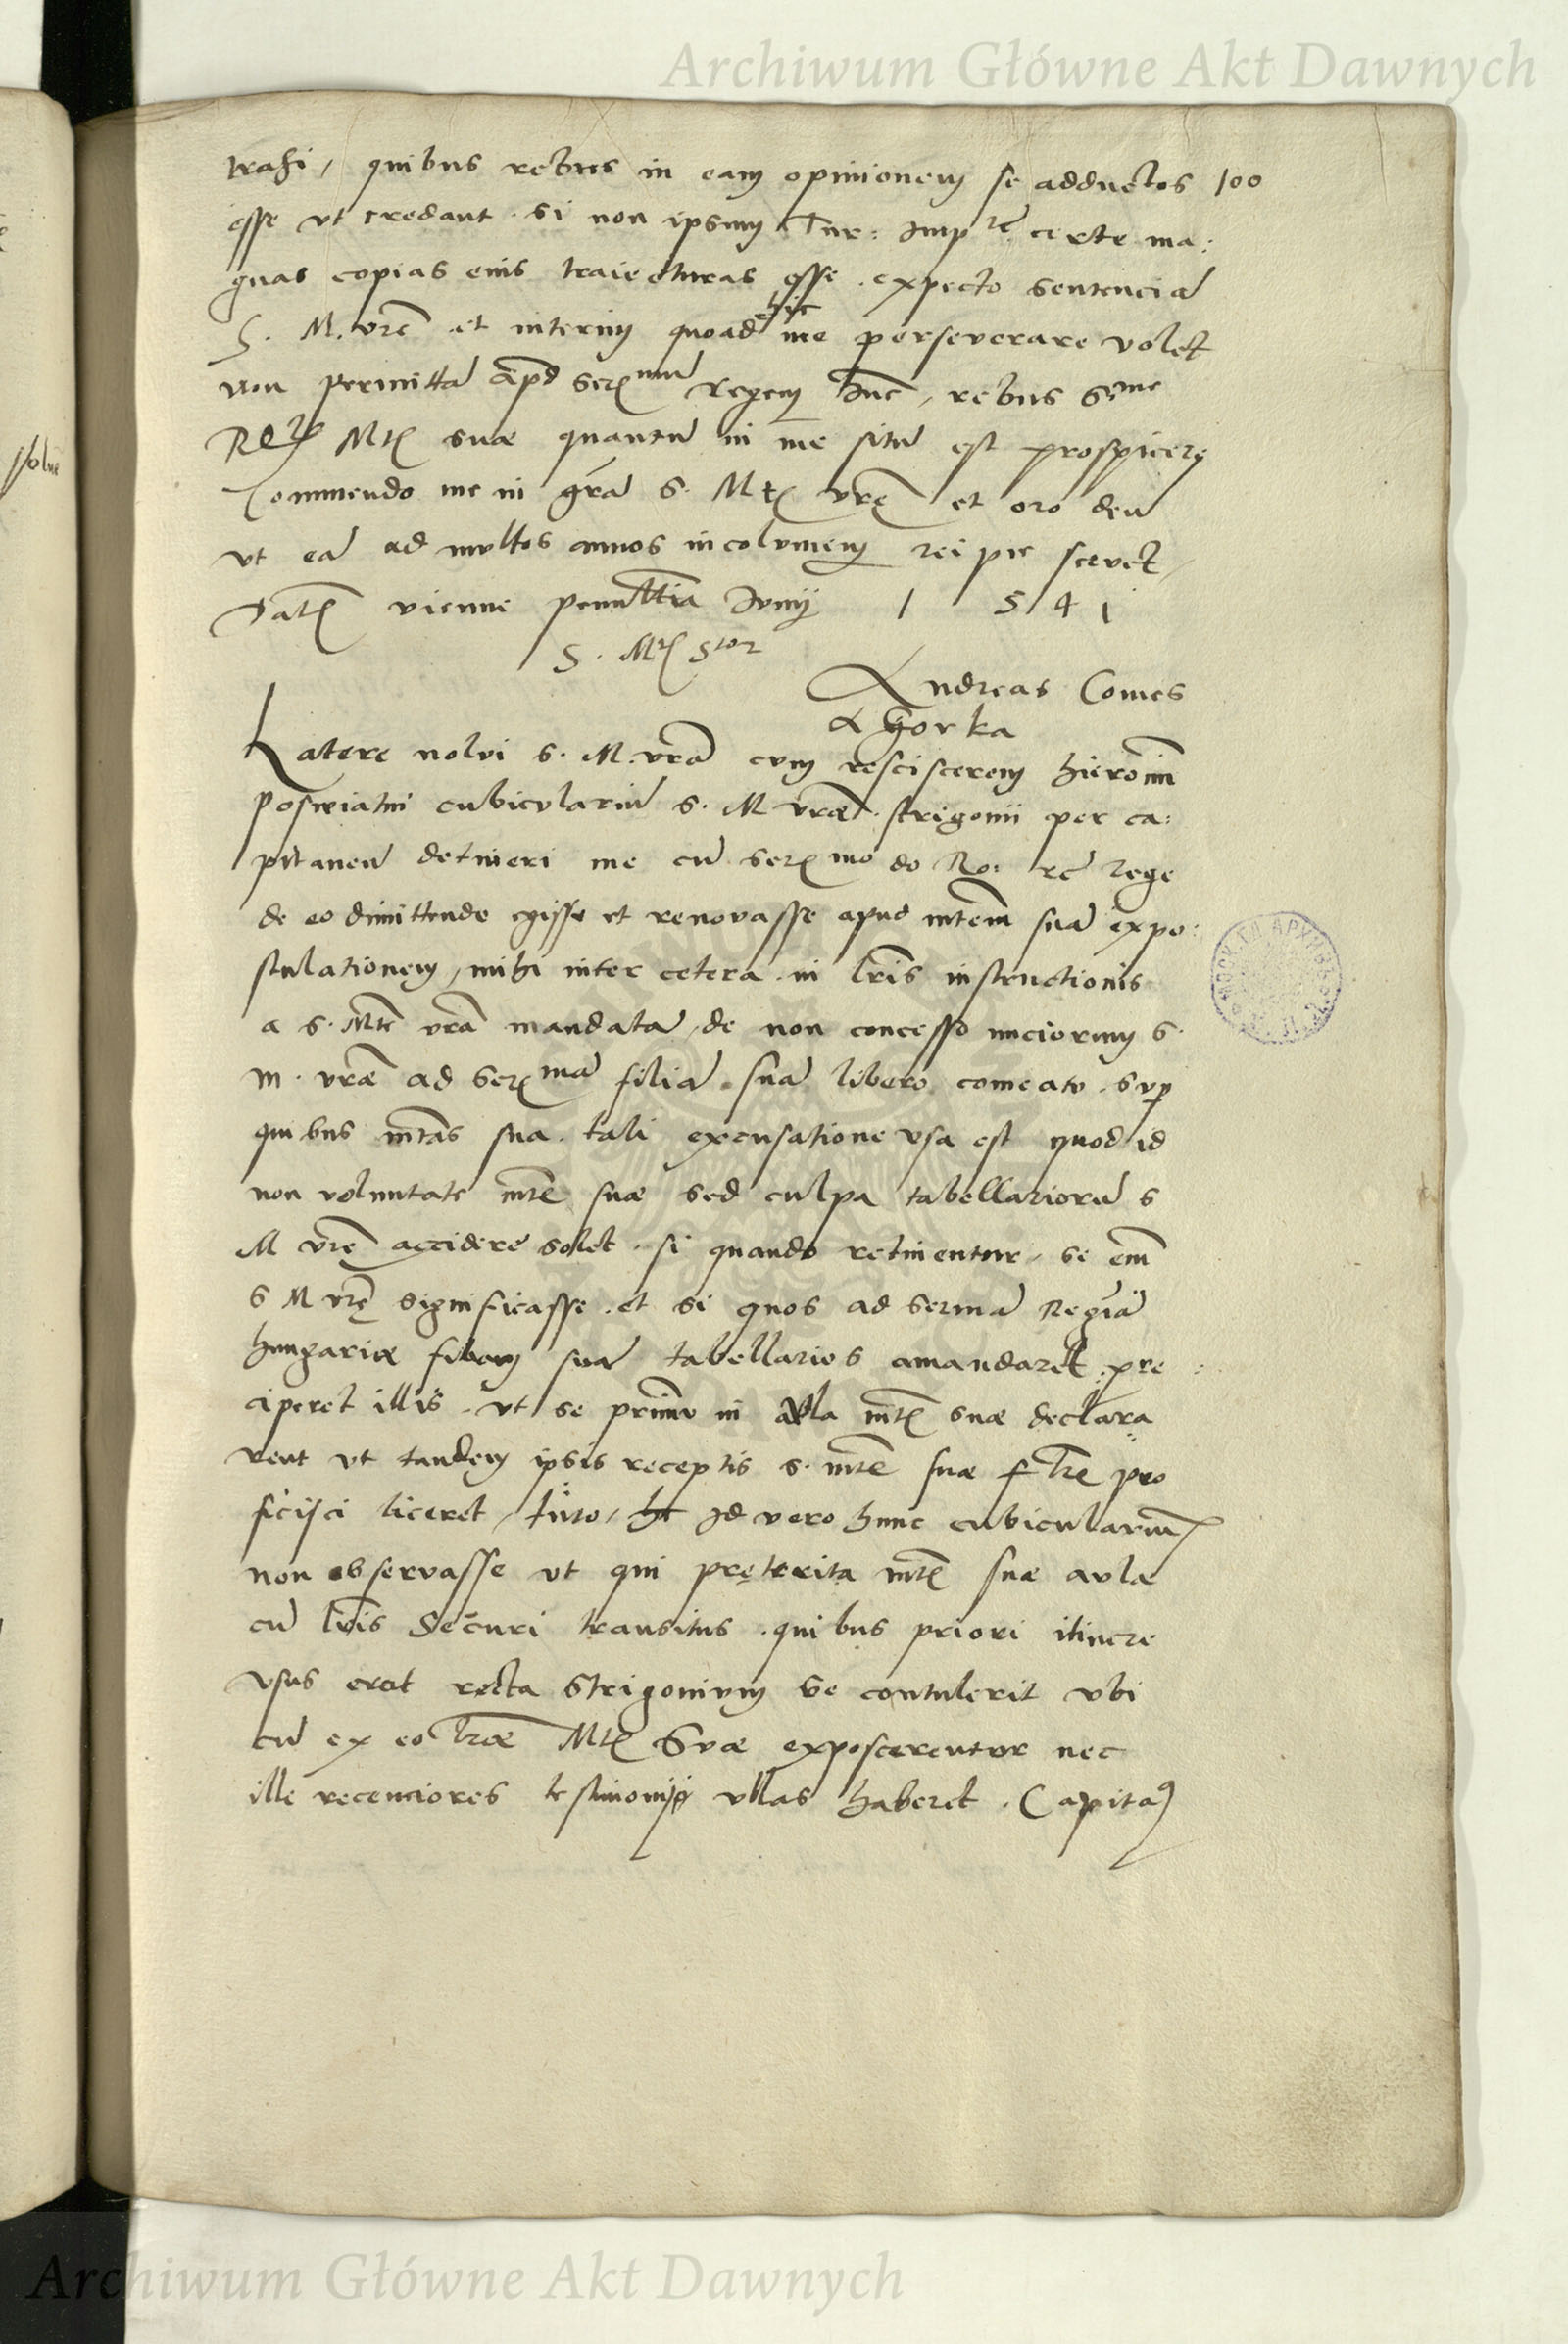 Archiwum Główne Akt Dawnych
trahi, quibus rebus in eam opinionem se adductos 100
esse ut credant. si non ipsum Tur: Imp re certe ma:
gnas copias eius traiecturas esse. expecto sentenciã
S. M. vrẽ et interim quoad hic me perseverare volet
non permittã apd Serᵐᵘᵐ Regem hũc, rebus Sᵐᵉ
Mtῖ suæ quantũ in me sitũ est prospicere
Commendo me in grã S. Mtῖ vrę et oro deũ
ut eã ad multos annos incolumem rei pu servet,
Datῖ vienne penultia Junij 1541
S. Mtῖ Stor
Andreas Comes
A Ghorka
Latere nolui S. M. vrã cum resciscerem hieronim
cubiculariũ S. M vræ. strigonii per ca:
pitaneũ detineri me cũ serᵐᵒ do Ro: rege
de eo dimittendo egisse et renovasse apud mtem suã expo:
stulationem, mihi inter cetera in lris instructionis
a S. Mte vrã mandatã, de non concesso nuciorum S.
M. vræ ad Serᵐᵃ filiã suã libero comeatu. sup
quibus mtas sua tali excusatione usa est quod id
non voluntate mtẽ suæ sed culpa tabellariorũ S
M vrę accidere solet. si quando retinentur, se em
S M vrę significasse. et si quos ad sermã Reginã
hungariæ filiam suã tabellarios amandaret: pre:
ciperet illis. ut se primũ in aula mtῖ suæ declara
rent ut tandem ipsis receptis s. mtẽ suæ lrẽ pro
ficisci liceret, tuto, Id vero hunc cubicularium
non observasse ut qui pręterita mtῖ suæ aulæ
cũ lris securi transitus. quibus priori itinere
usus erat recta Strigonium se contulerit ubi
cũ ex eo lræ Mtῖ Suæ exposcerentur nec
ille recenciores testimonij ullas haberet. Capita9
Archiwum Główne Akt Dawnych